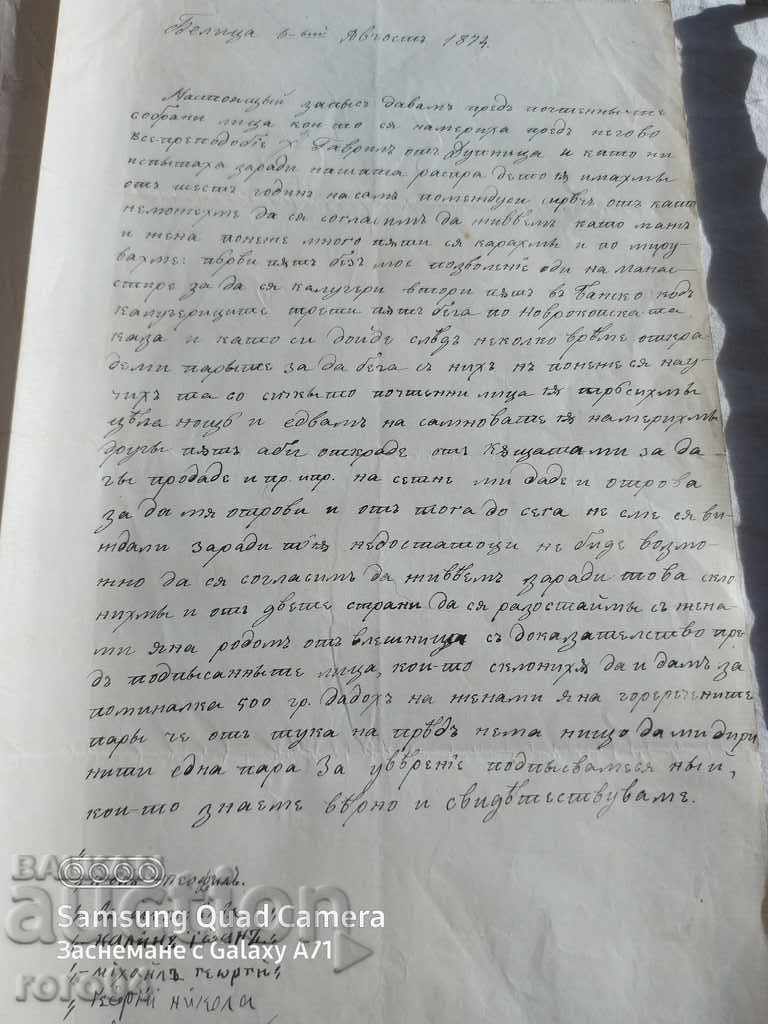 Бѣлица 6-ый Августъ 1874.
Настоящый запысъ давамъ предъ почтеннычте
собрани лица кои то ся намериха предъ негово
Все-преподобіе Х Гаврилъ отъ Дупница и като ни
испытаха заради нашата распра дето ѭ имахмы
отъ шесть годинъ насамъ помендуси сирѣчь отъ като
неможехме да ся согласимъ да живѣемъ като мажъ
и жена понеже много пѫти ся карахмы и по миру-
вахме: първи пѫть безъ мое позволеніе оди на мънас-
тире за да ся калугери втори пѫть въ Банско кодъ
калугерицыте трети пѫть бѣга по Новрокопската
каза и като си дойде слѣдъ неколко врѣме открад-
деми парыте за да бѣга съ нихъ нъ понеже ся нау-
чихъ та со сичкыто почтенни лица ѭ търсихмы
цѣла нощь и едвамъ на самновате ѭ намерихмы
другы пѫть абы открадe отъ кѫщатами за да
гы продаде и пр. ипр. на сетне ми даде и отрова
за да мя отрови и отъ тога до сега не сме ся ви-
ждали заради тыя недостатоци не бѫде возмо-
жно да ся согласимъ да живѣемъ заради това скло
нихмы и отъ двете страни да ся разостаймы съ жена-
ми яна родомъ отъ влешница съ доказателство пре-
дъ подпысанныте лица, кои-то склонихѫ да и дамъ за
поминалка 500 гр. дадохъ на женами яна гореречените
пары че отъ тука на прѣдъ нема нищо да ми дири
ниши една пара За увѣреніе подпысвамеся ный,
кои-то знаеме вѣрно и свидѣтествуваме.
Теофилъ.
Калинъ Іоанъ
Михаилъ Георги
Георгі Никола
Samsung Quad Camera
Заснемане с Galaxy A71
BAЛКАН
auction
roro94